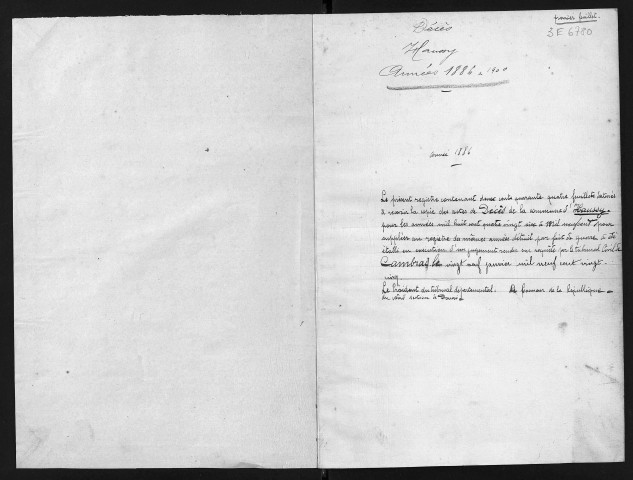 premier feuillet.
3E6780
Décès
Haussy
Années 1886 à 1900
Année 1886
Le présent registre contenant deux cent quarante quatre feuillets destinés
à recevoir la copie des actes de Décès de la commune d'Haussy
pour les années mil huit cent quatre vingt six à mil neuf cent pour
suppléer au registre des mêmes années détruit par fait de guerre a été
établi en exécution d'un jugement rendu sur requête par le tribunal Civil de
Cambrai le vingt neuf janvier mil neuf cent vingt-
cinq.
Le Président du tribunal départemental. Le Procureur de la République